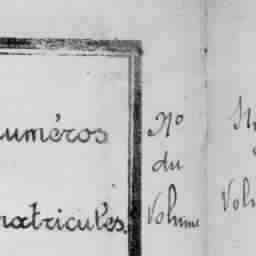 numéros
matricules.
No
du
Volume